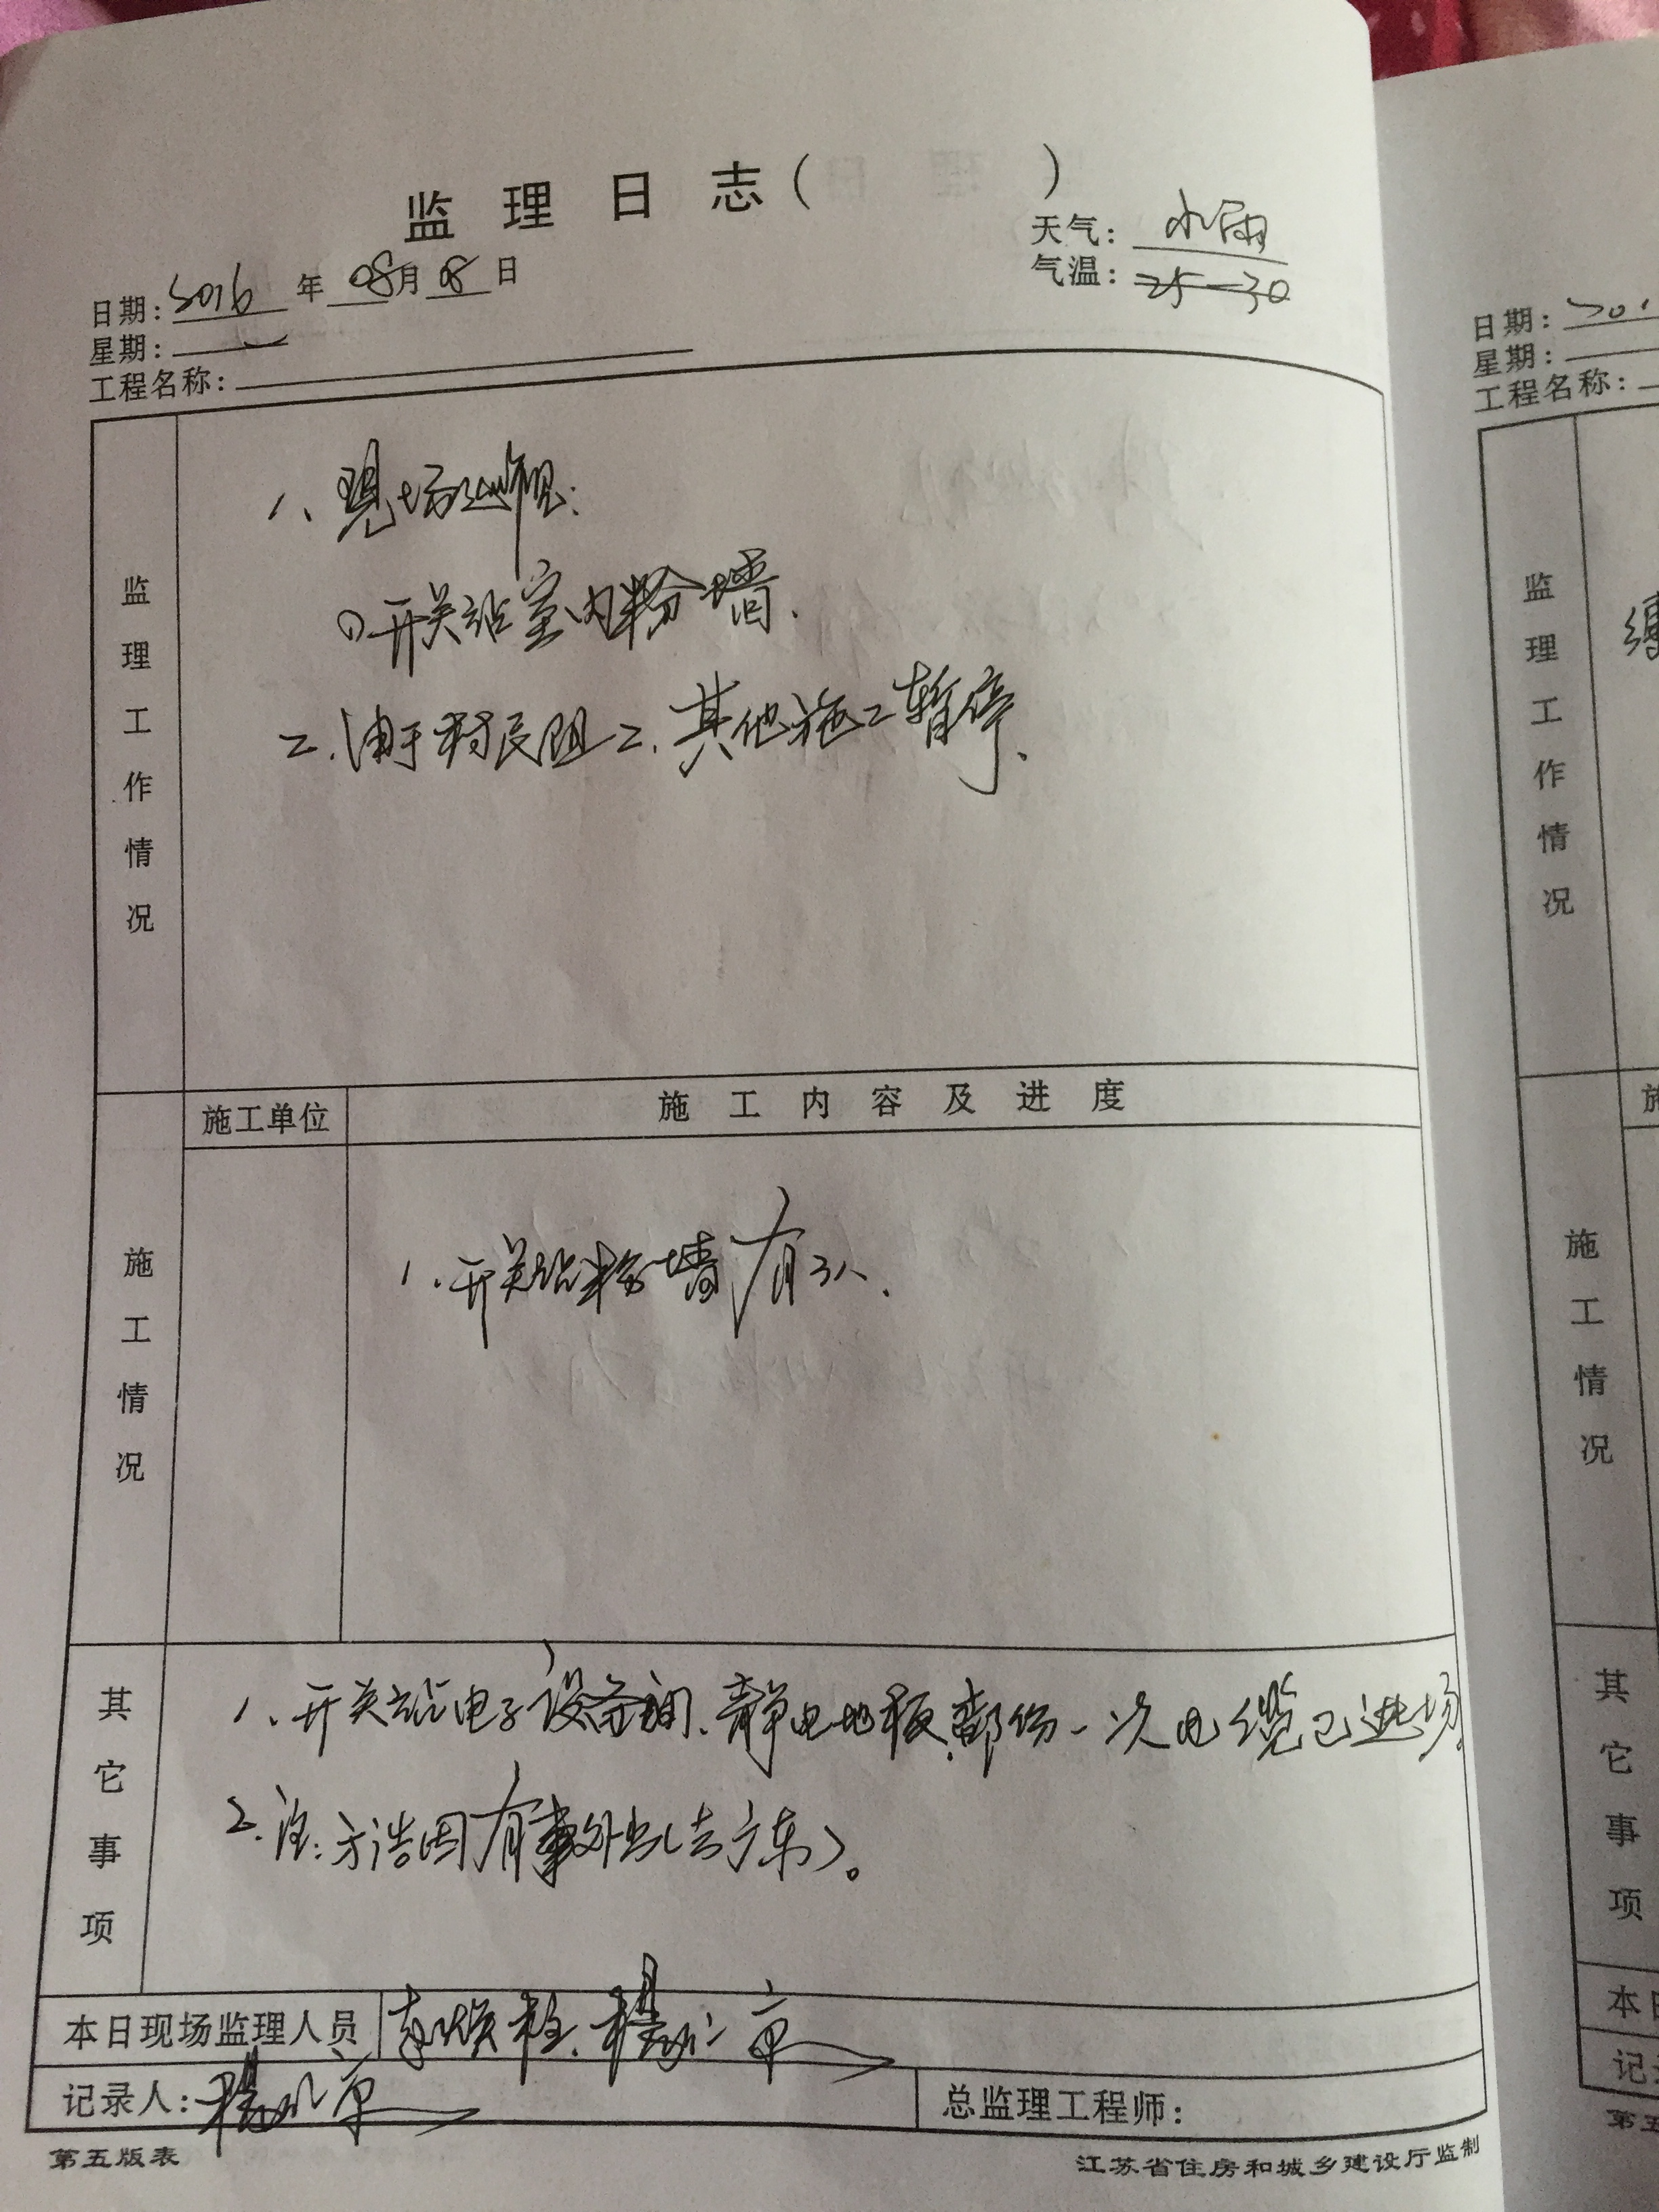 监理日志（ ）
天气：小雨
日期：2016年08月08日
气温：25—30
星期：一
工程名称：
监理工作情况
1、现场巡视：
①开关站室内粉墙.
2.由于村民阻工.其他施工暂停.
施工单位
施工内容及进度
施工情况
1.开关站粉墙有3人.
其它事项
1、开关站电子设备间.静电地板.部份一次电缆已进场.
2.注:方浩因有事外出(去广东)。
本日现场监理人员
记录人：
总监理工程师：
第五版表
江苏省住房和城乡建设厅监制
日期：201
星期：
工程名称：
监理工作情况
施
施工情况
其它事项
本日
记录
第五